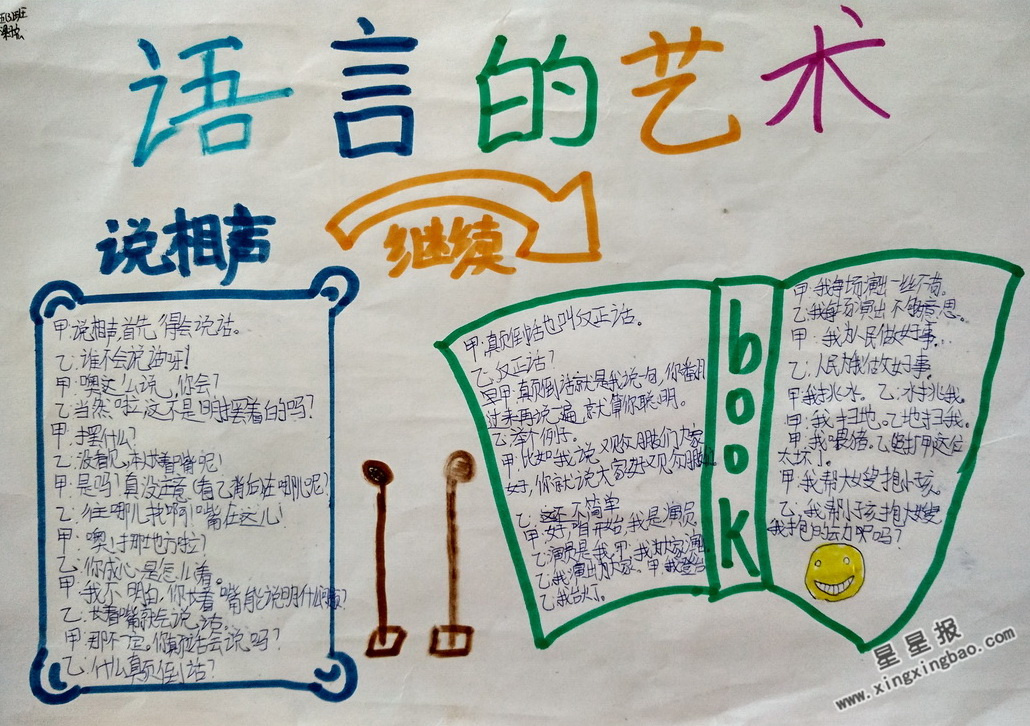 语言的艺术
说相声
继续
甲:说相声,首先,得会说话。
乙:谁不会说话呀!
甲:噢这么说,你会?
乙:当然啦,这不是明摆着的吗?
甲:摆什么?
乙:没看见,本长着嘴呢!
甲:是吗?真没注意(看乙背后)在哪儿呢?
乙:往哪儿找啊!嘴在这儿!
甲:噢!挪地方啦?
乙:你成心是怎儿着。
甲:我不明白,你长着嘴能说明什么问题?
乙:长着嘴就会说话。
甲:那不一定。你颠倒话会说吗?
乙:什么颠倒话?
甲:颠倒话也叫反正话。
乙:反正话?
甲:颠倒话就是我说一句,你翻
过来再说一遍,就算你聪明。
乙:举个例子。
甲:比如我说观众朋友们大家
好,你就说大家好观众朋
乙:这不简单
甲:好,咱开始,我是演员
乙:演员是我。甲:我为大家演出
乙:我演出为大家。甲:我登台
乙:我台灯。
book
甲:我每场演出一丝不苟。
乙:我每场演出不够意思。
甲:我为人民做好事。
乙:人民为我做好事。
甲:我挑水。乙:水挑我。
甲:我扫地。乙:地扫我。
甲:我喂猪。乙:
太坏了。
甲:我帮大嫂抱小孩。
乙:我帮小孩抱大嫂
我抱的动吗?
星星报
www.xingxingbao.com